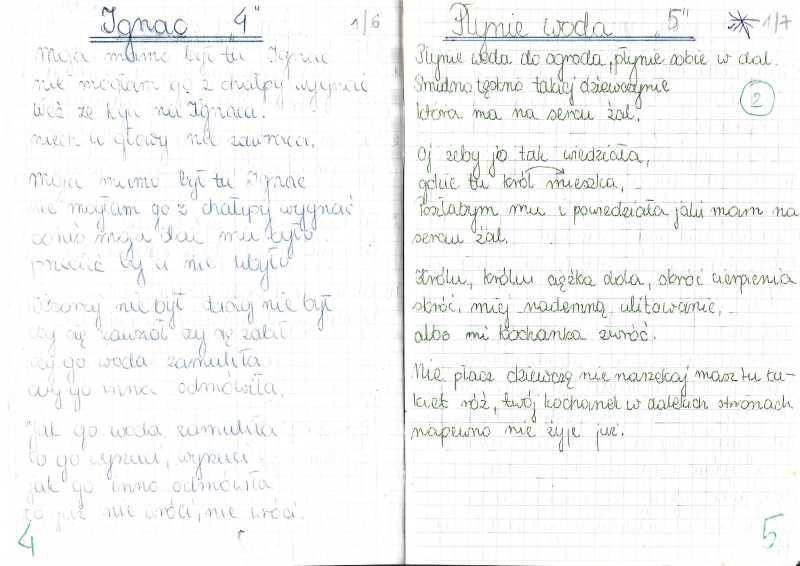 Ignac "4" 1/6
Moja mamo był tu Ignac
nie mogłam go z chałpy wygnać
Weź ze kyu na Ignaca.
niech u głowy nie zawraca.
Moja mamo był tu Ignac
nie mogłam go z chałpy wygnać
mu było
by u nie ubyło
Wczoraj nie był dzisiaj nie był
czy się zawzół czy się zabił
czy go woda zamuliła
czy go inna odmówiła.
Jak go woda zamuliła
to go wyrzuci, wyrzuci
jak go inno odmówiła
to już nie wróci, nie wróci.
4
Płynie woda "5" 1/7
Płynie woda do ogroda, płynie sobie w dal.
Smutno tęskno takiej dziewczynie
która ma na sercu żal.
2
Oj żeby jo tak wiedziała,
gdzie tu król mieszka,
Poszłabym mu i powiedziała jaki mam na
sercu żal.
Królu, królu ciężka dola, skróć cierpienia
skróć, miej nademną ulitowanie,
albo mi kochanka zwróć.
Nie płacz dziewczę nie narzekaj masz tu bu-
kiet róż, twój kochanek w dalekich stronach
napewno nie żyje już.
5